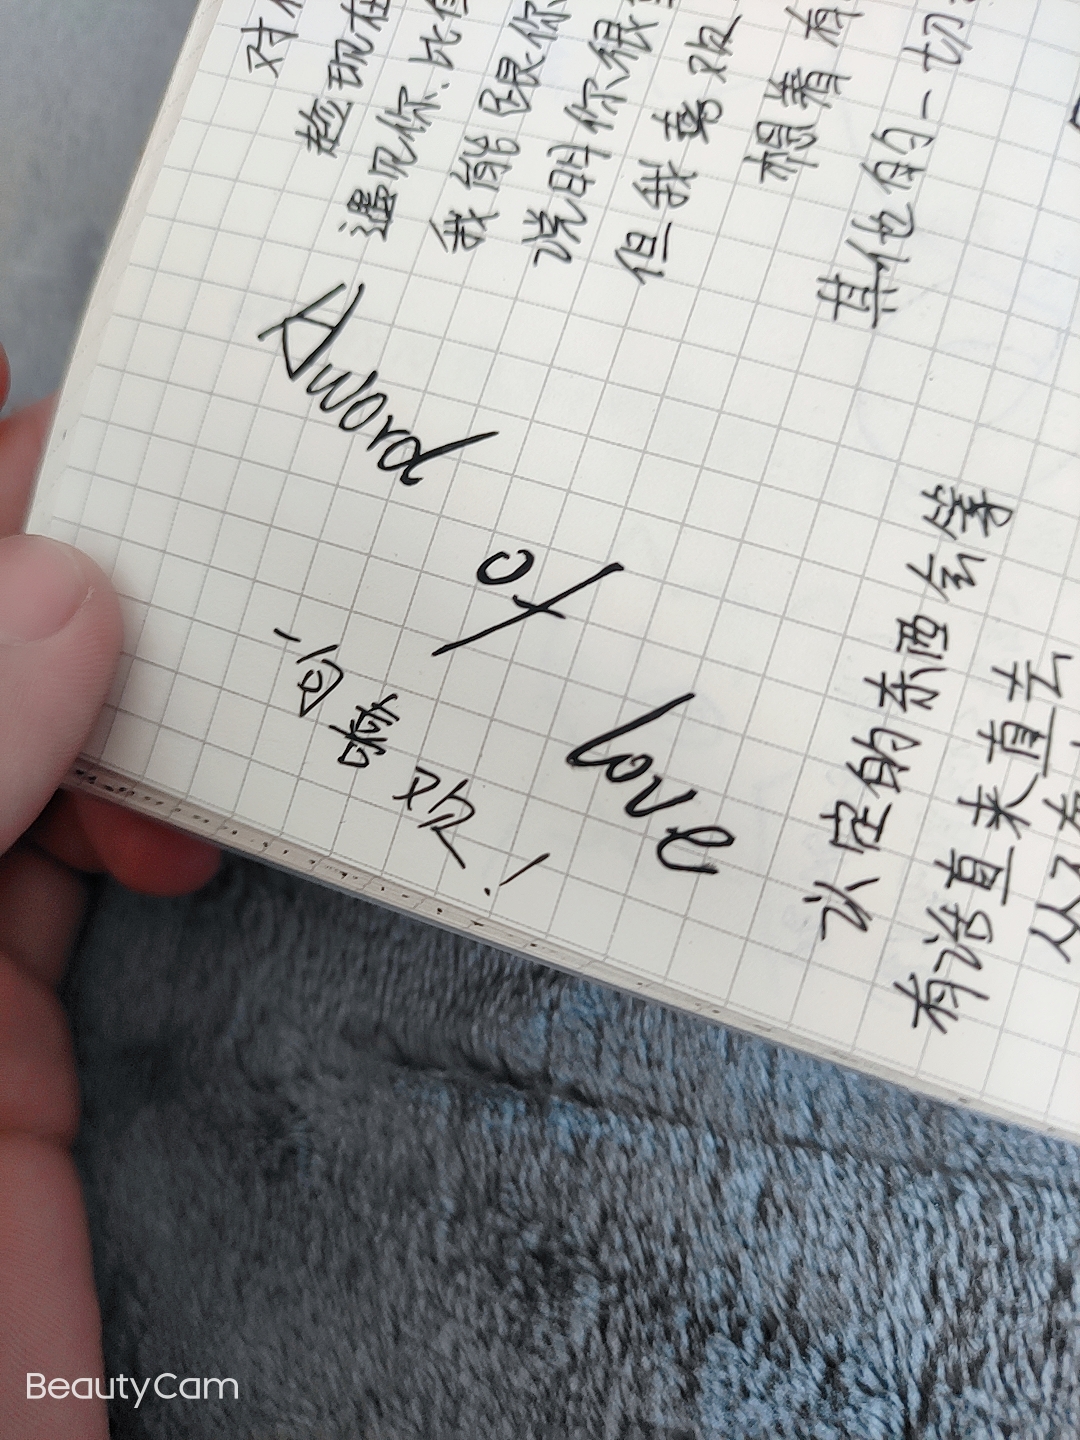 对
趁现在
遇见你.比
我能跟你
说明你很
但我喜欢
想着有
其他的一切
A word
of
love
一句喜欢!
认定的东西会等
有话直来直去
从不
BeautyCam